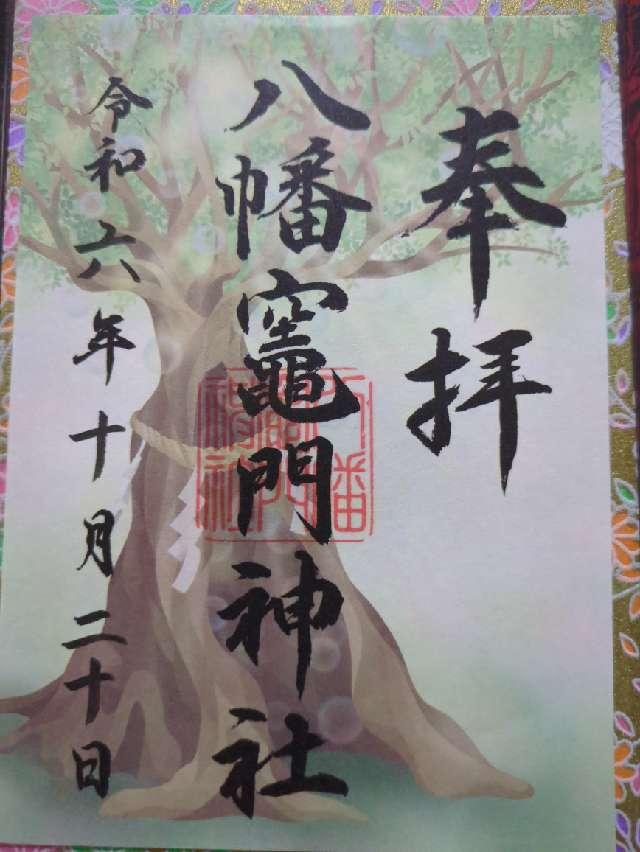 奉拝
八幡竈門神社
令和六年十月二十日